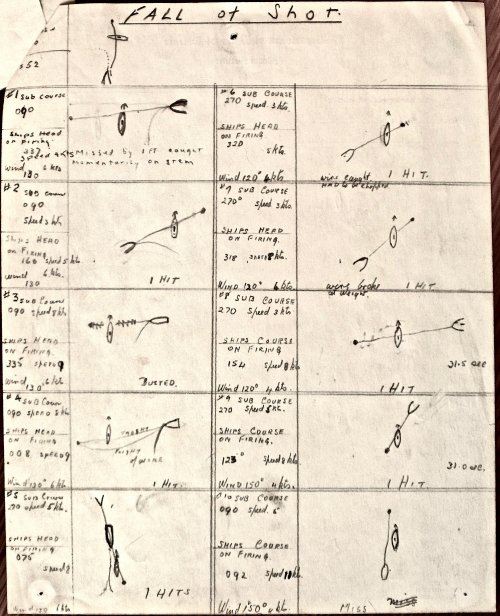 FALL of Shot.
S52
#1 Sub Course
090
Ships Head
on Firing
337
Speed 9 kts
Wind 6 kts
130
Missed by 1 FT caught
momentarily on stem
#2
Sub Course
090
Speed 3 kts
Ships Head
on Firing
160 speed 5 kts
wind 6 kts.
130
1 HIT
#3 Sub Course
090 speed 8 kts
Ships Head
on Firing
335 speed 9
Wind 6 kts
130
BUSTED.
#4 Sub Course
090 speed 8 kts
Ships Head
on Firing
008 speed 9
Wind 130° 6 kts
FLIGHT of WIRE
1 HIT
#5 Sub Course
speed 5 kts.
Ships Head
on Firing
075
Speed 8
Wind 150
1 HITS
#6 Sub Course
270 speed 3 kts.
Ships Head
on Firing
320
5 kts.
Wind 120° 6 kts.
wire caught
had to be chopped
1 HIT.
Sub Course
270° speed 3 kts.
Ships Head
on Firing.
318 speed 8 kts.
Wind 120° 6 kts.
wire broke
at weight.
1 HIT
#8 Sub Course
270 speed 3 kts
Ships Course
on Firing
154 speed 8 kts
Wind 120° 4 kts.
31.5 sec
1 HIT
#9 Sub Course
270 speed 5 kts.
Ships Course
on Firing.
123° speed 8 kts
Wind 150° 4 kts.
31.0 sec.
1 HIT
#10 Sub Course
090 speed. 5
Ships Course
on Firing
092 speed 10 kts
Wind 150° 4 kts.
MISS